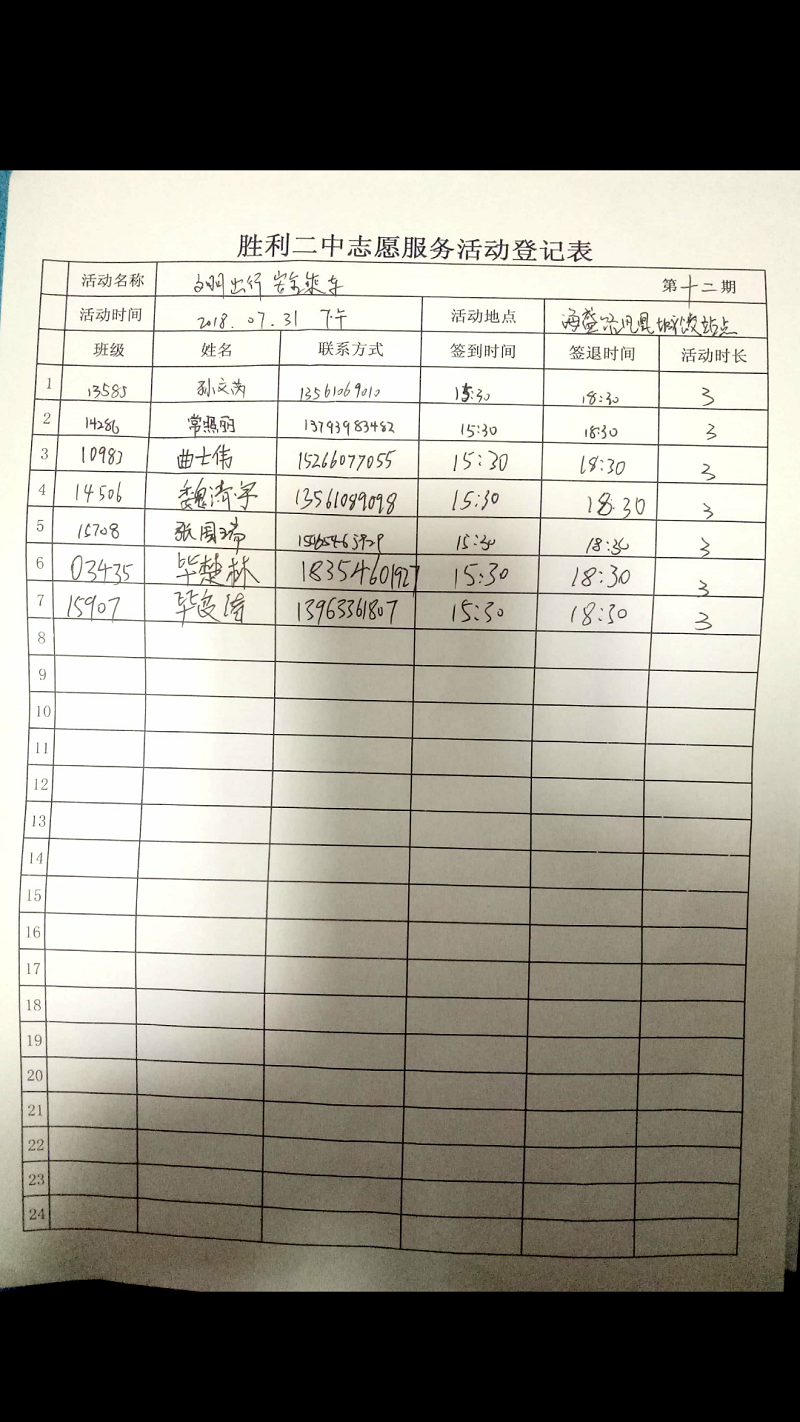 胜利二中志愿服务活动登记表
活动名称 文明出行 安全乘车 第十二期
活动时间 2018.07.31 下午 活动地点 海盛路凤凰城 站点
班级 姓名 联系方式 签到时间 签退时间 活动时长
1 13585 孙文芮 13561069010 15:30 18:30 3
2 14286 常照丽 13793983482 15:30 18:30 3
3 10983 曲士伟 15266077055 15:30 18:30 3
4 14506 魏清宇 13561089098 15:30 18:30 3
5 15708 张国瑞 15:30 18:30 3
6 03435 毕楚林 18354601927 15:30 18:30 3
7 15907 毕 涛 13963361807 15:30 18:30 3
8
9
10
11
12
13
14
15
16
17
18
19
20
21
22
23
24